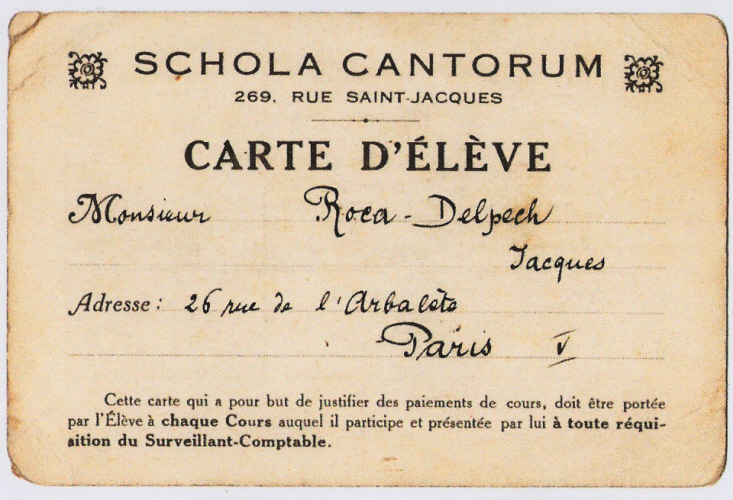 SCHOLA CANTORUM
269, RUE SAINT-JACQUES
CARTE D'ÉLÈVE
Monsieur Roca-Delpech
Jacques
Adresse : 26 rue de l'Arbalète
Paris V
Cette carte qui a pour but de justifier des paiements de cours, doit être portée
par l'Élève à chaque Cours auquel il participe et présentée par lui à toute réqui-
sition du Surveillant-Comptable.